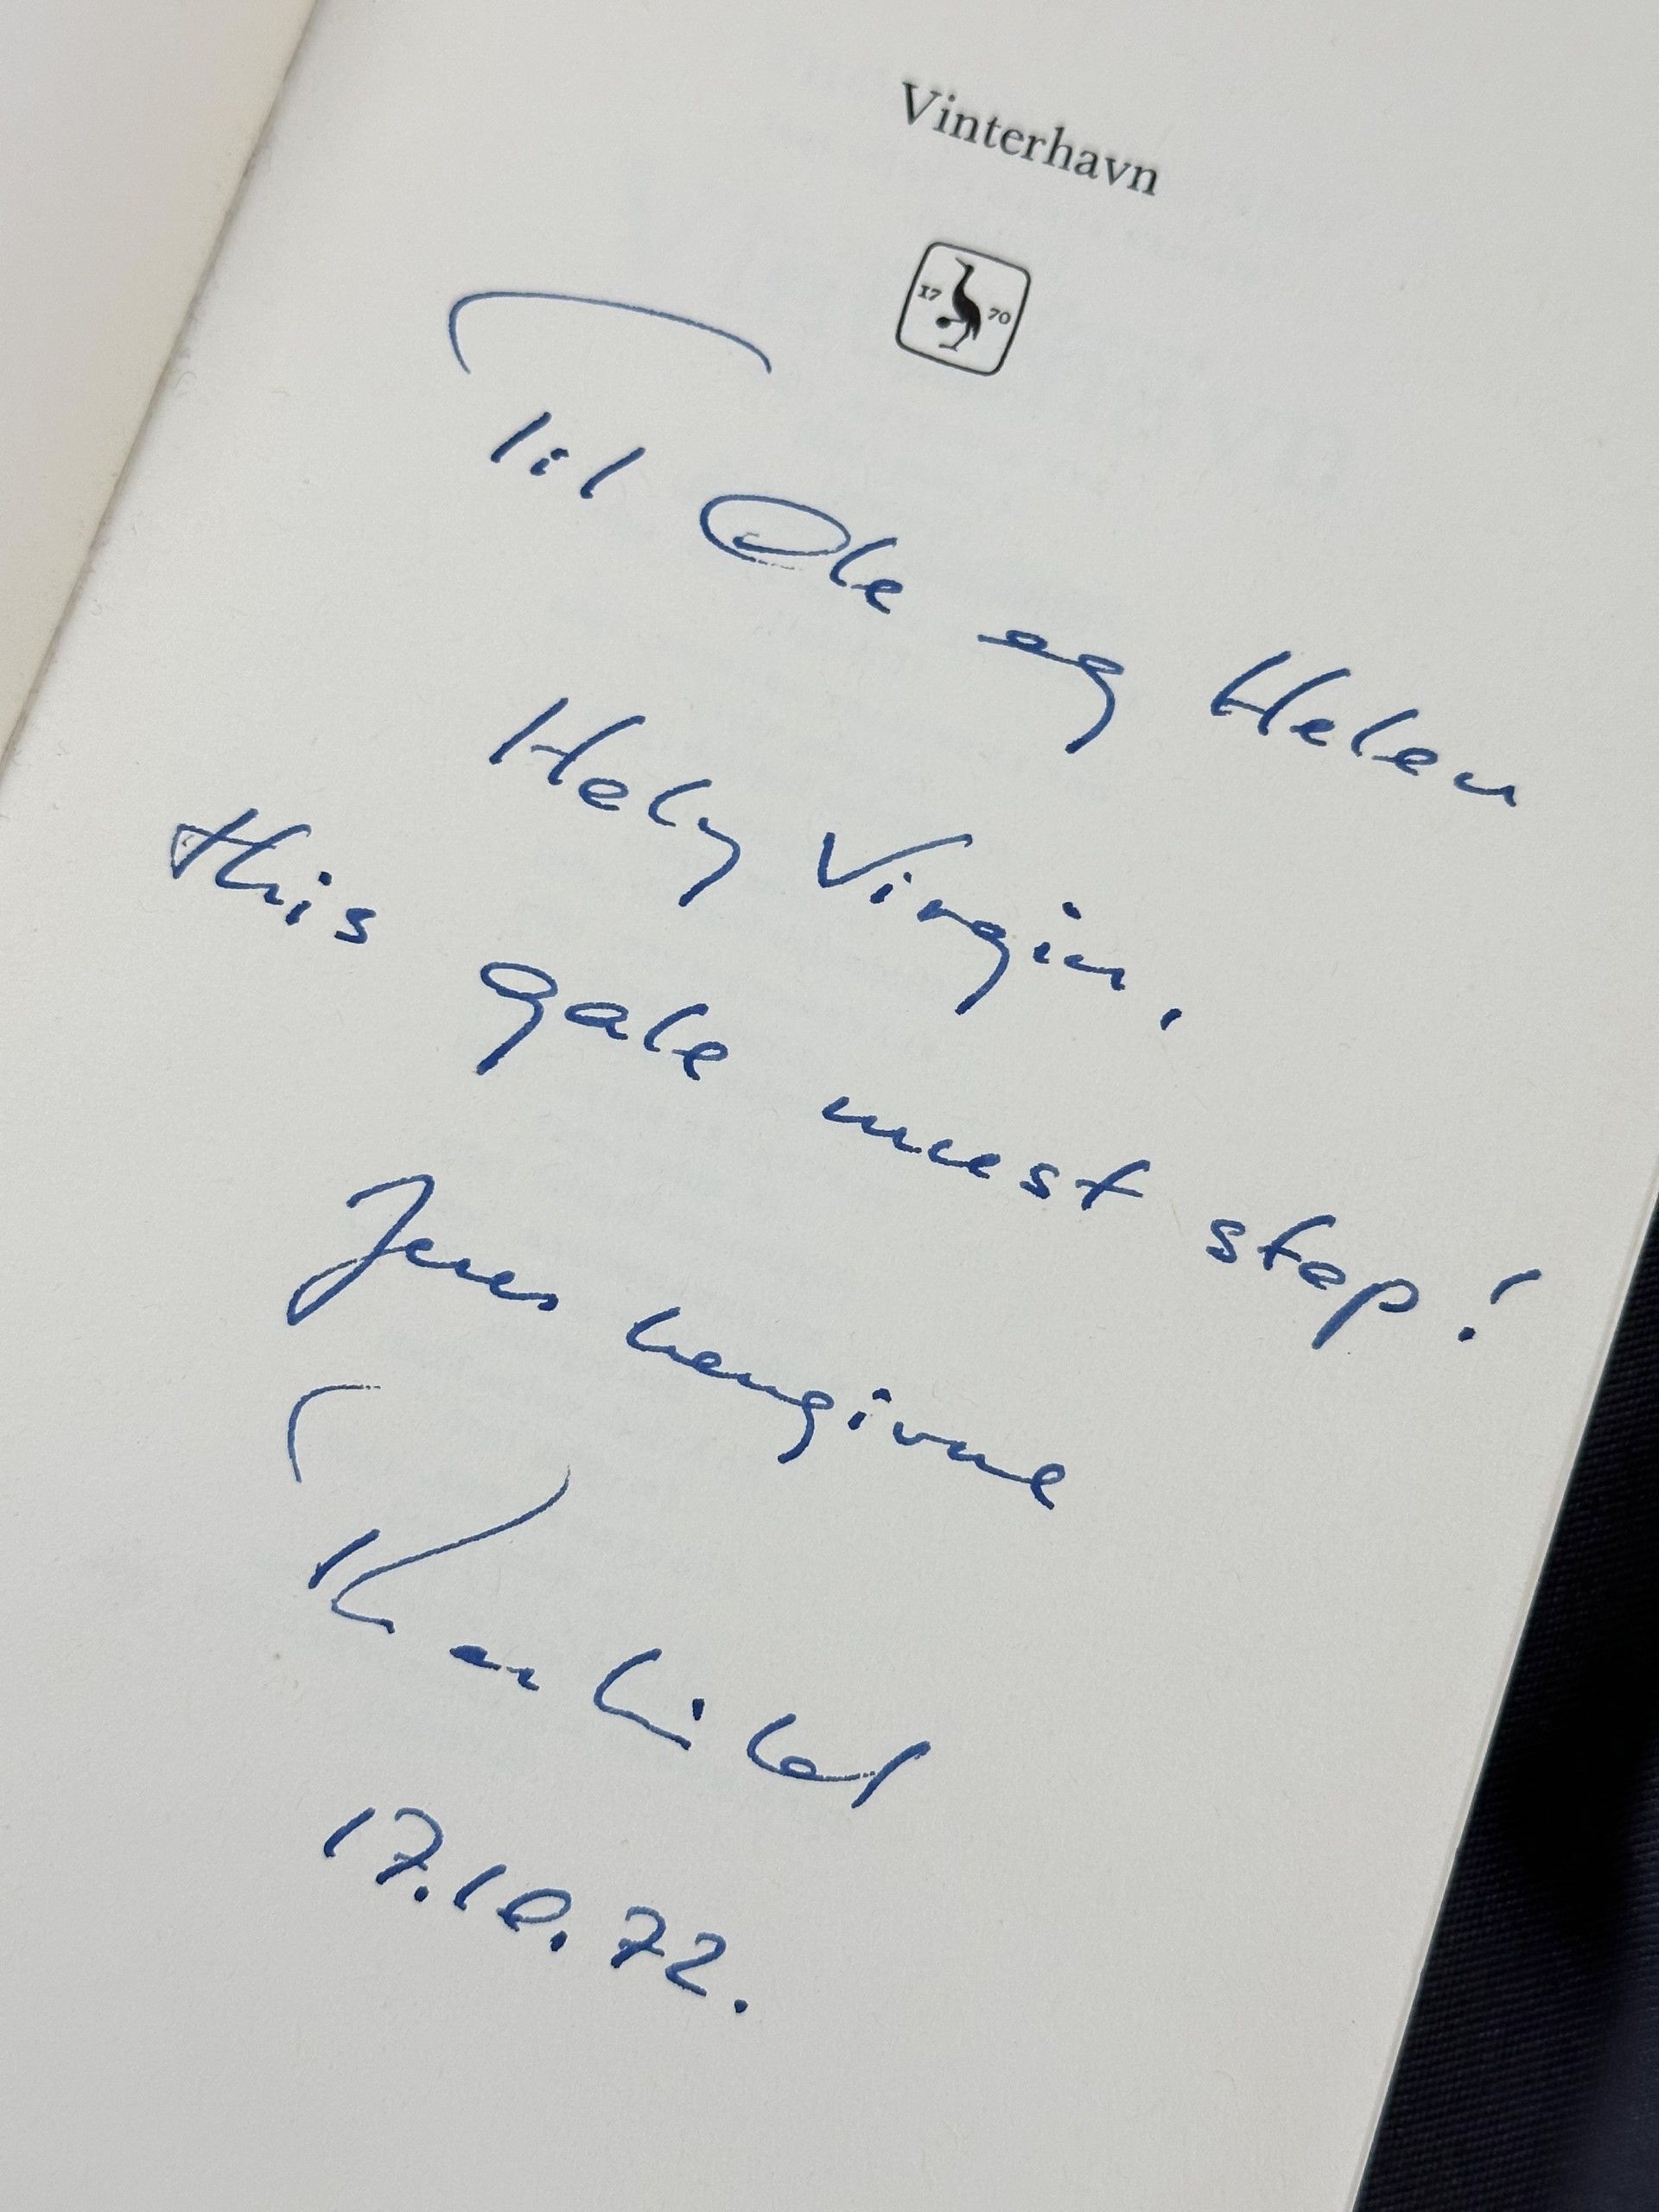 Vinterhavn
17 70
Til Ole og Helen
Holy Virgin,
this gale must stop!
Jeres hengivne
17.10.72.